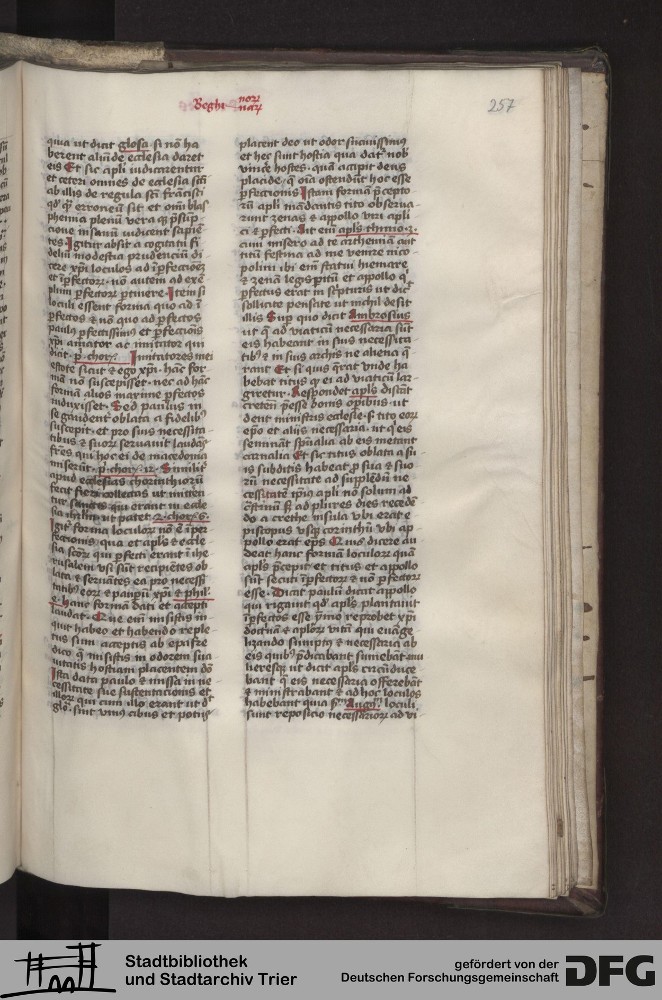 257
quia ut dicit glosa si nō ha
berent aliūde ecclesia daret
eis Et sic apli iudicarentur
et ceteri omnes de ecclesia
ab illis de regula sci francisci
qd' erroneū sit et om̄i blas
phemia plenū vera
cione insanū iudicent sapiē
tes. Igitur absit a cogitatu fi
deliū modestia prudenciū di
cere xp̄i loculos ad
nō autem ad exē
plum Item si
loculi essent forma quo ad
nō quo ad
paulus perfectissimus et
xp̄i amator ac imitator qui
dicit Imitatores mei
estote sicut & ego xp̄i hāc for
mā nō suscepisset nec ad hāc
formā alios maxime
induxisset. Sed paulus in
se gaudent oblata a fidelib'
suscepit et pro suis necessita
tibus & suorū servavit laudās
fr̄es qui hoc ei de macedonia
miserūt
apud ecclesias chorinthiorū
fecit fieri collectas ut mitten
tur sanctis qui erant in eccle
sia ut patet
Igitur forma loculorū nō ē
feccionis qua et apl's & eccle
sia scorū qui erant ī ihe
rusalem usi sūt recipiētes ob
lata & servātes ea pro necessi
tatibus eorū & paup̄ū xp̄i & phil'
hanc formā dati et accepti
laudat. Que em̄ misistis in
quit habeo et habundo reple
tus sum acceptis ab epafre
dito q̄ misistis in odorem sua
vitatis hostiam placentem dō
Ista data paulo & missa in ne
cessitate sue sustentacionis et
illorū qui cum illo erant ut dt
glo. sint unius cibus et potus
placent deo ut odor suavissimus
et hec sunt hostia quā dat nob'
vincē hostes quā accipit deus
placide q̄ oīa ostendūt hoc esse
Istam formā
rū apli mādantis tito observa
verunt zenas & appollo viri apli
ci & Ait em̄ apl's
cum misero ad te arthemam aut
titū festina ad me venire nico
polim ibi em̄ statui hiemare
& zenā legisperitū et appollo
perfectus erat in scripturis ut dicitur
sollicite pensate ut nichil desit
illis Super quo dicit Ambrosius
ut q̄ ad viaticū necessaria sūt
eis habeant in suis necessita
tib' & in suis archis ne aliena
rant Et si quis querat unde ha
bebat titus q̄ ei ad viaticū lar
giretur. Respondet apl's dicit
cretensi preesse bonis operibus ut
dent ministris ecclesie s. tito eorū
ep̄o et aliis necessaria. ut q̄ eis
seminant sp̄ualia ab eis metant
carnalia Et sic titus oblata a su
is subditis habeat pro sua & suo
rū necessitate ad supplendū ne
cessitatē ip̄iū apli nō solum ad
sed ad plures dies recedē
do a crethe insula ubi erat e
piscopus usq̄ corinthū ubi ap
pollo erat ep̄s Quis dicere au
deat hanc formā loculorū quā
apl's precepit et titus et appollo
sūt secuti & nō
esse. Dicat paulū dicat appollo
qui rigavit qd' apl's plantavit
esse primo reprobet xp̄i
doctrinā & aplorū vitā qui evāge
lizando sumptus & necessaria ab
eis quib' predicabant sumebāt mu
lieresq̄ ut dicit apl's circūduce
bant que eis necessaria offerebāt
& ministrabant & ad hoc loculos
habebant quia Augustinum loculi
sunt reposicio necessariorū ad vi
Stadtbibliothek
und Stadtarchiv Trier
gefördert von der
Deutschen Forschungsgemeinschaft
DFG